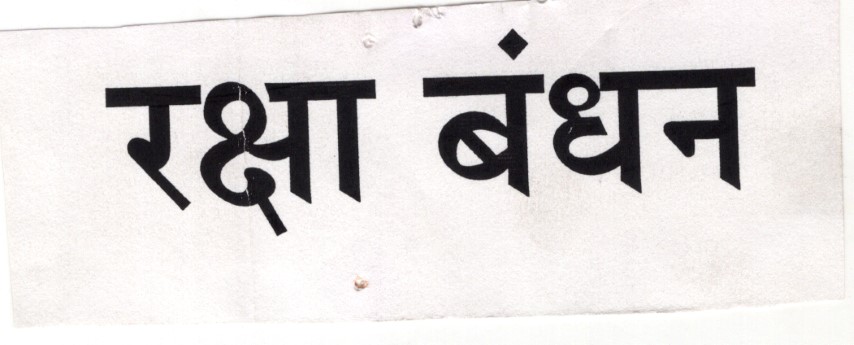 रक्षा बंधन